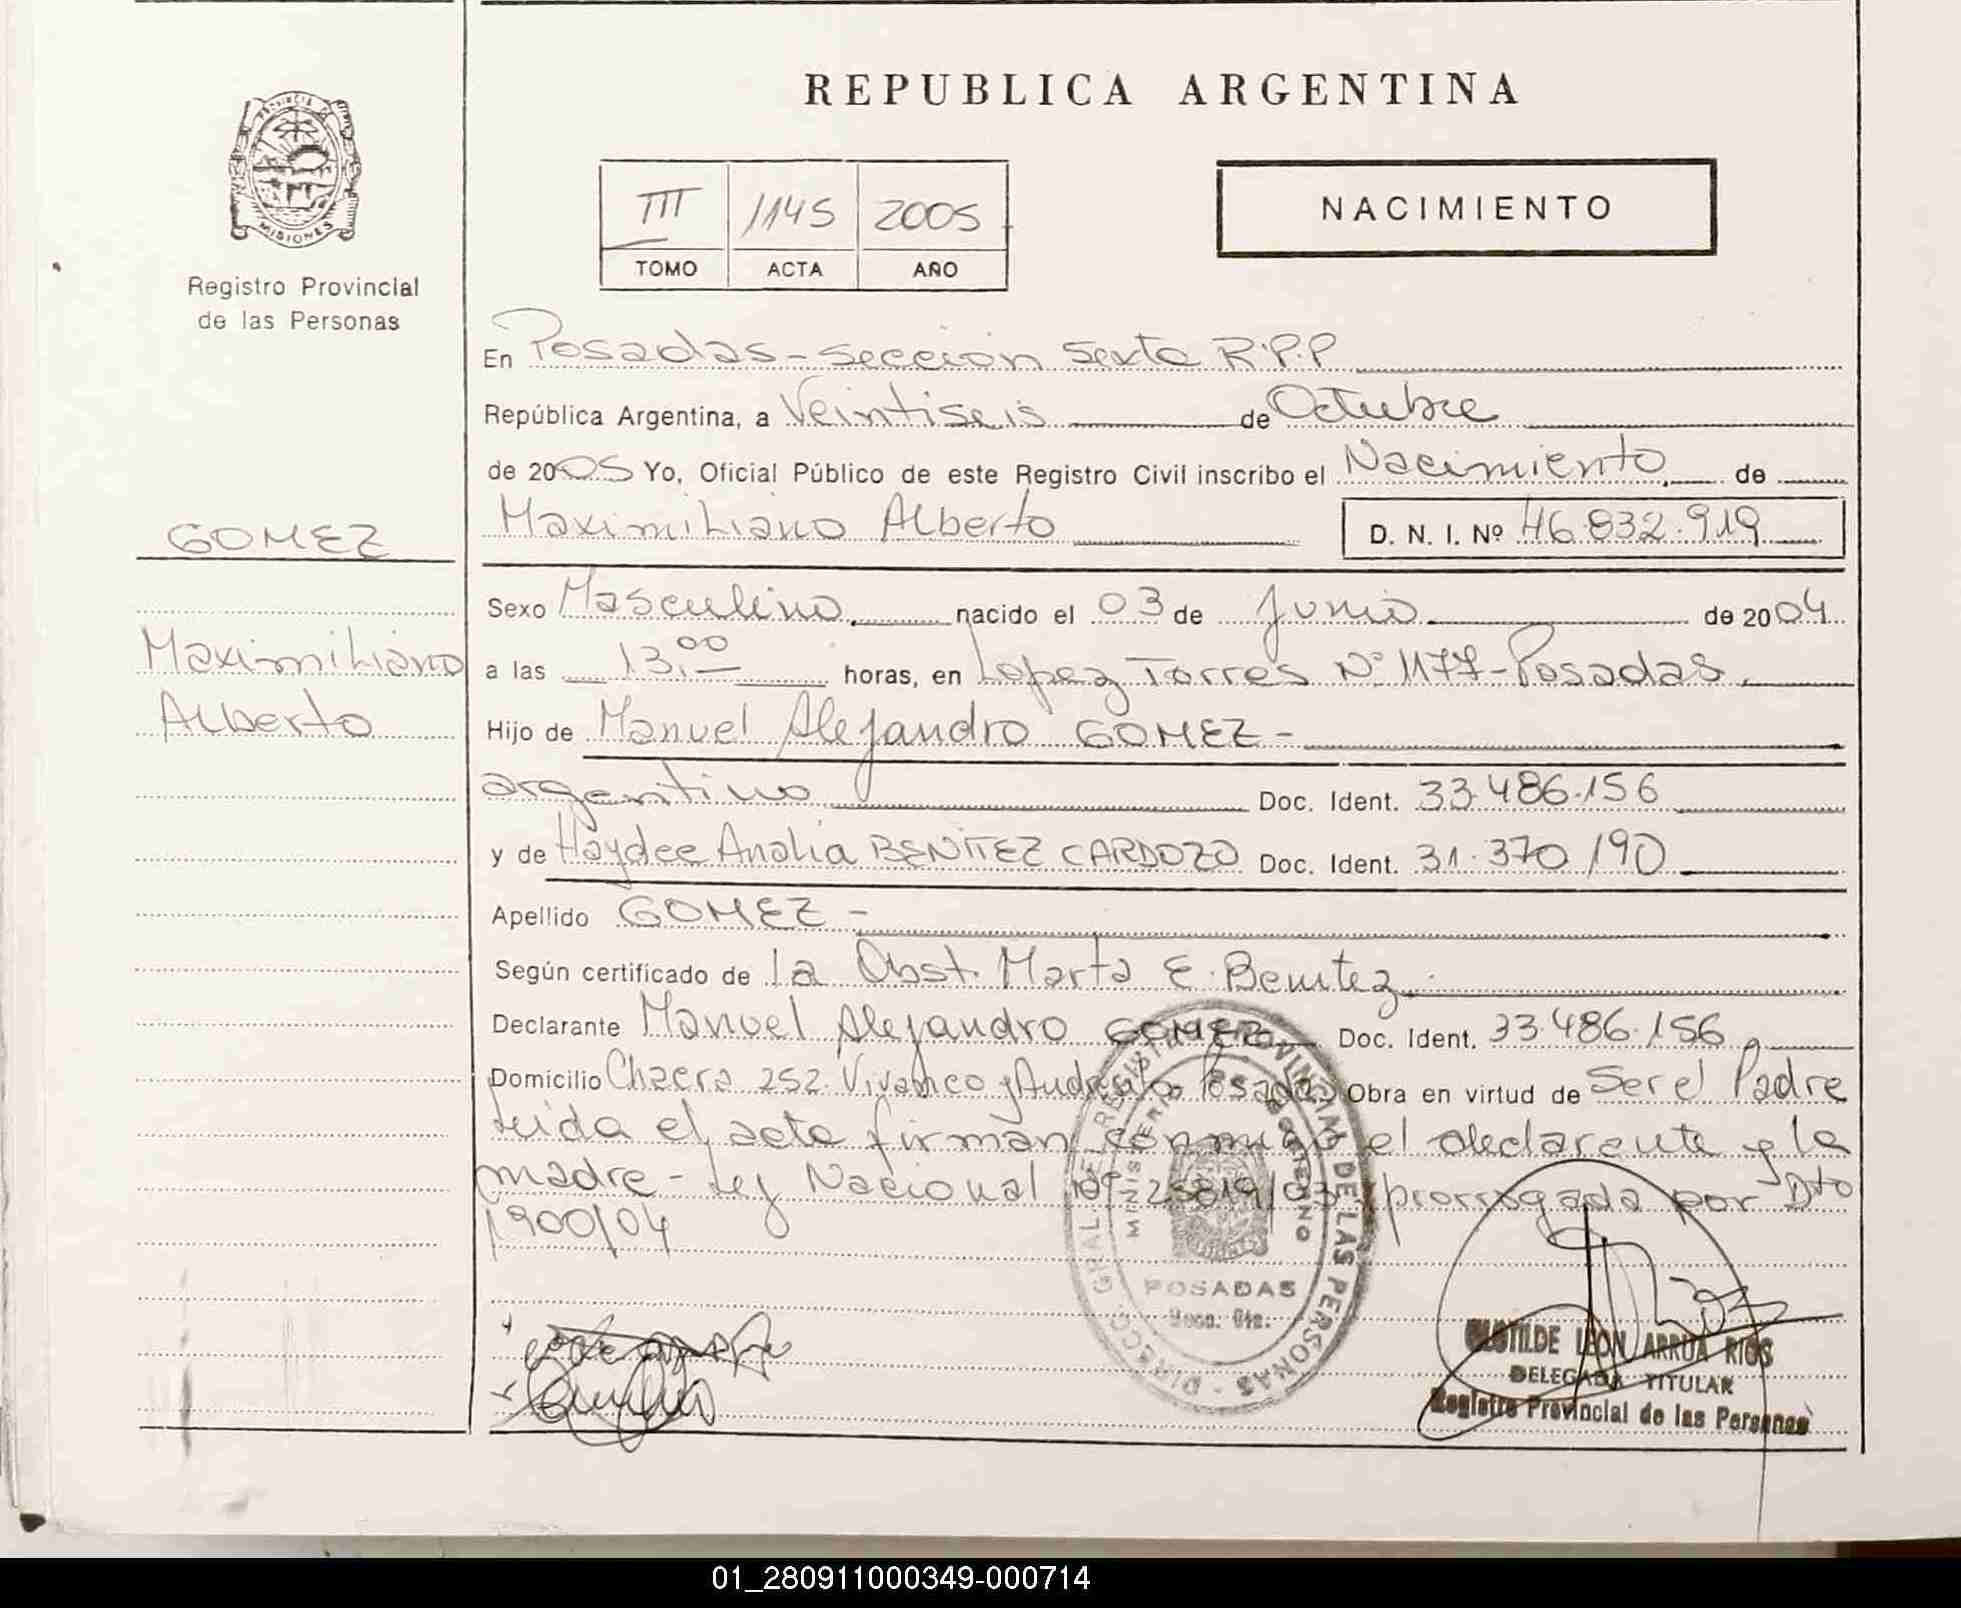 REPUBLICA ARGENTINA
PROVINCIA DE
MISIONES
Registro Provincial
de las Personas
III 1145 2005
TOMO ACTA AÑO
NACIMIENTO
En Posadas - Seccion Sexta R.P.P
República Argentina, a Veintiseis de Octubre
de 2005 Yo, Oficial Público de este Registro Civil inscribo el Nacimiento de
GOMEZ
Maximiliano Alberto D. N. I. Nº 46.832.919
Sexo Masculino nacido el 03 de Junio de 2004
Maximiliano
a las 13,00 horas, en Lopez Torres Nº 1177 - Posadas
Alberto
Hijo de Manuel Alejandro GOMEZ -
argentino Doc. Ident. 33.486.156
y de Haydee Analia BENITEZ CARDOZO Doc. Ident. 31.370.190
Apellido GOMEZ -
Según certificado de la Obst. Marta E. Benitez
Declarante Manuel Alejandro GOMEZ Doc. Ident. 33.486.156
Domicilio Chacra 252. Vivanco y Posadas Obra en virtud de Ser el Padre
Leida el acta firman conmigo el declarante y la
madre - Ley Nacional Nº 25819/03 prorrogada por Dto
1900/04
DIRECC. GRAL. DEL REGISTRO PROVINCIAL DE LAS PERSONAS
MINISTERIO DE GOBIERNO
POSADAS
Secc. 6ta.
CLOTILDE LEON ARRUA RIOS
DELEGADA TITULAR
Registro Provincial de las Personas
01_280911000349-000714